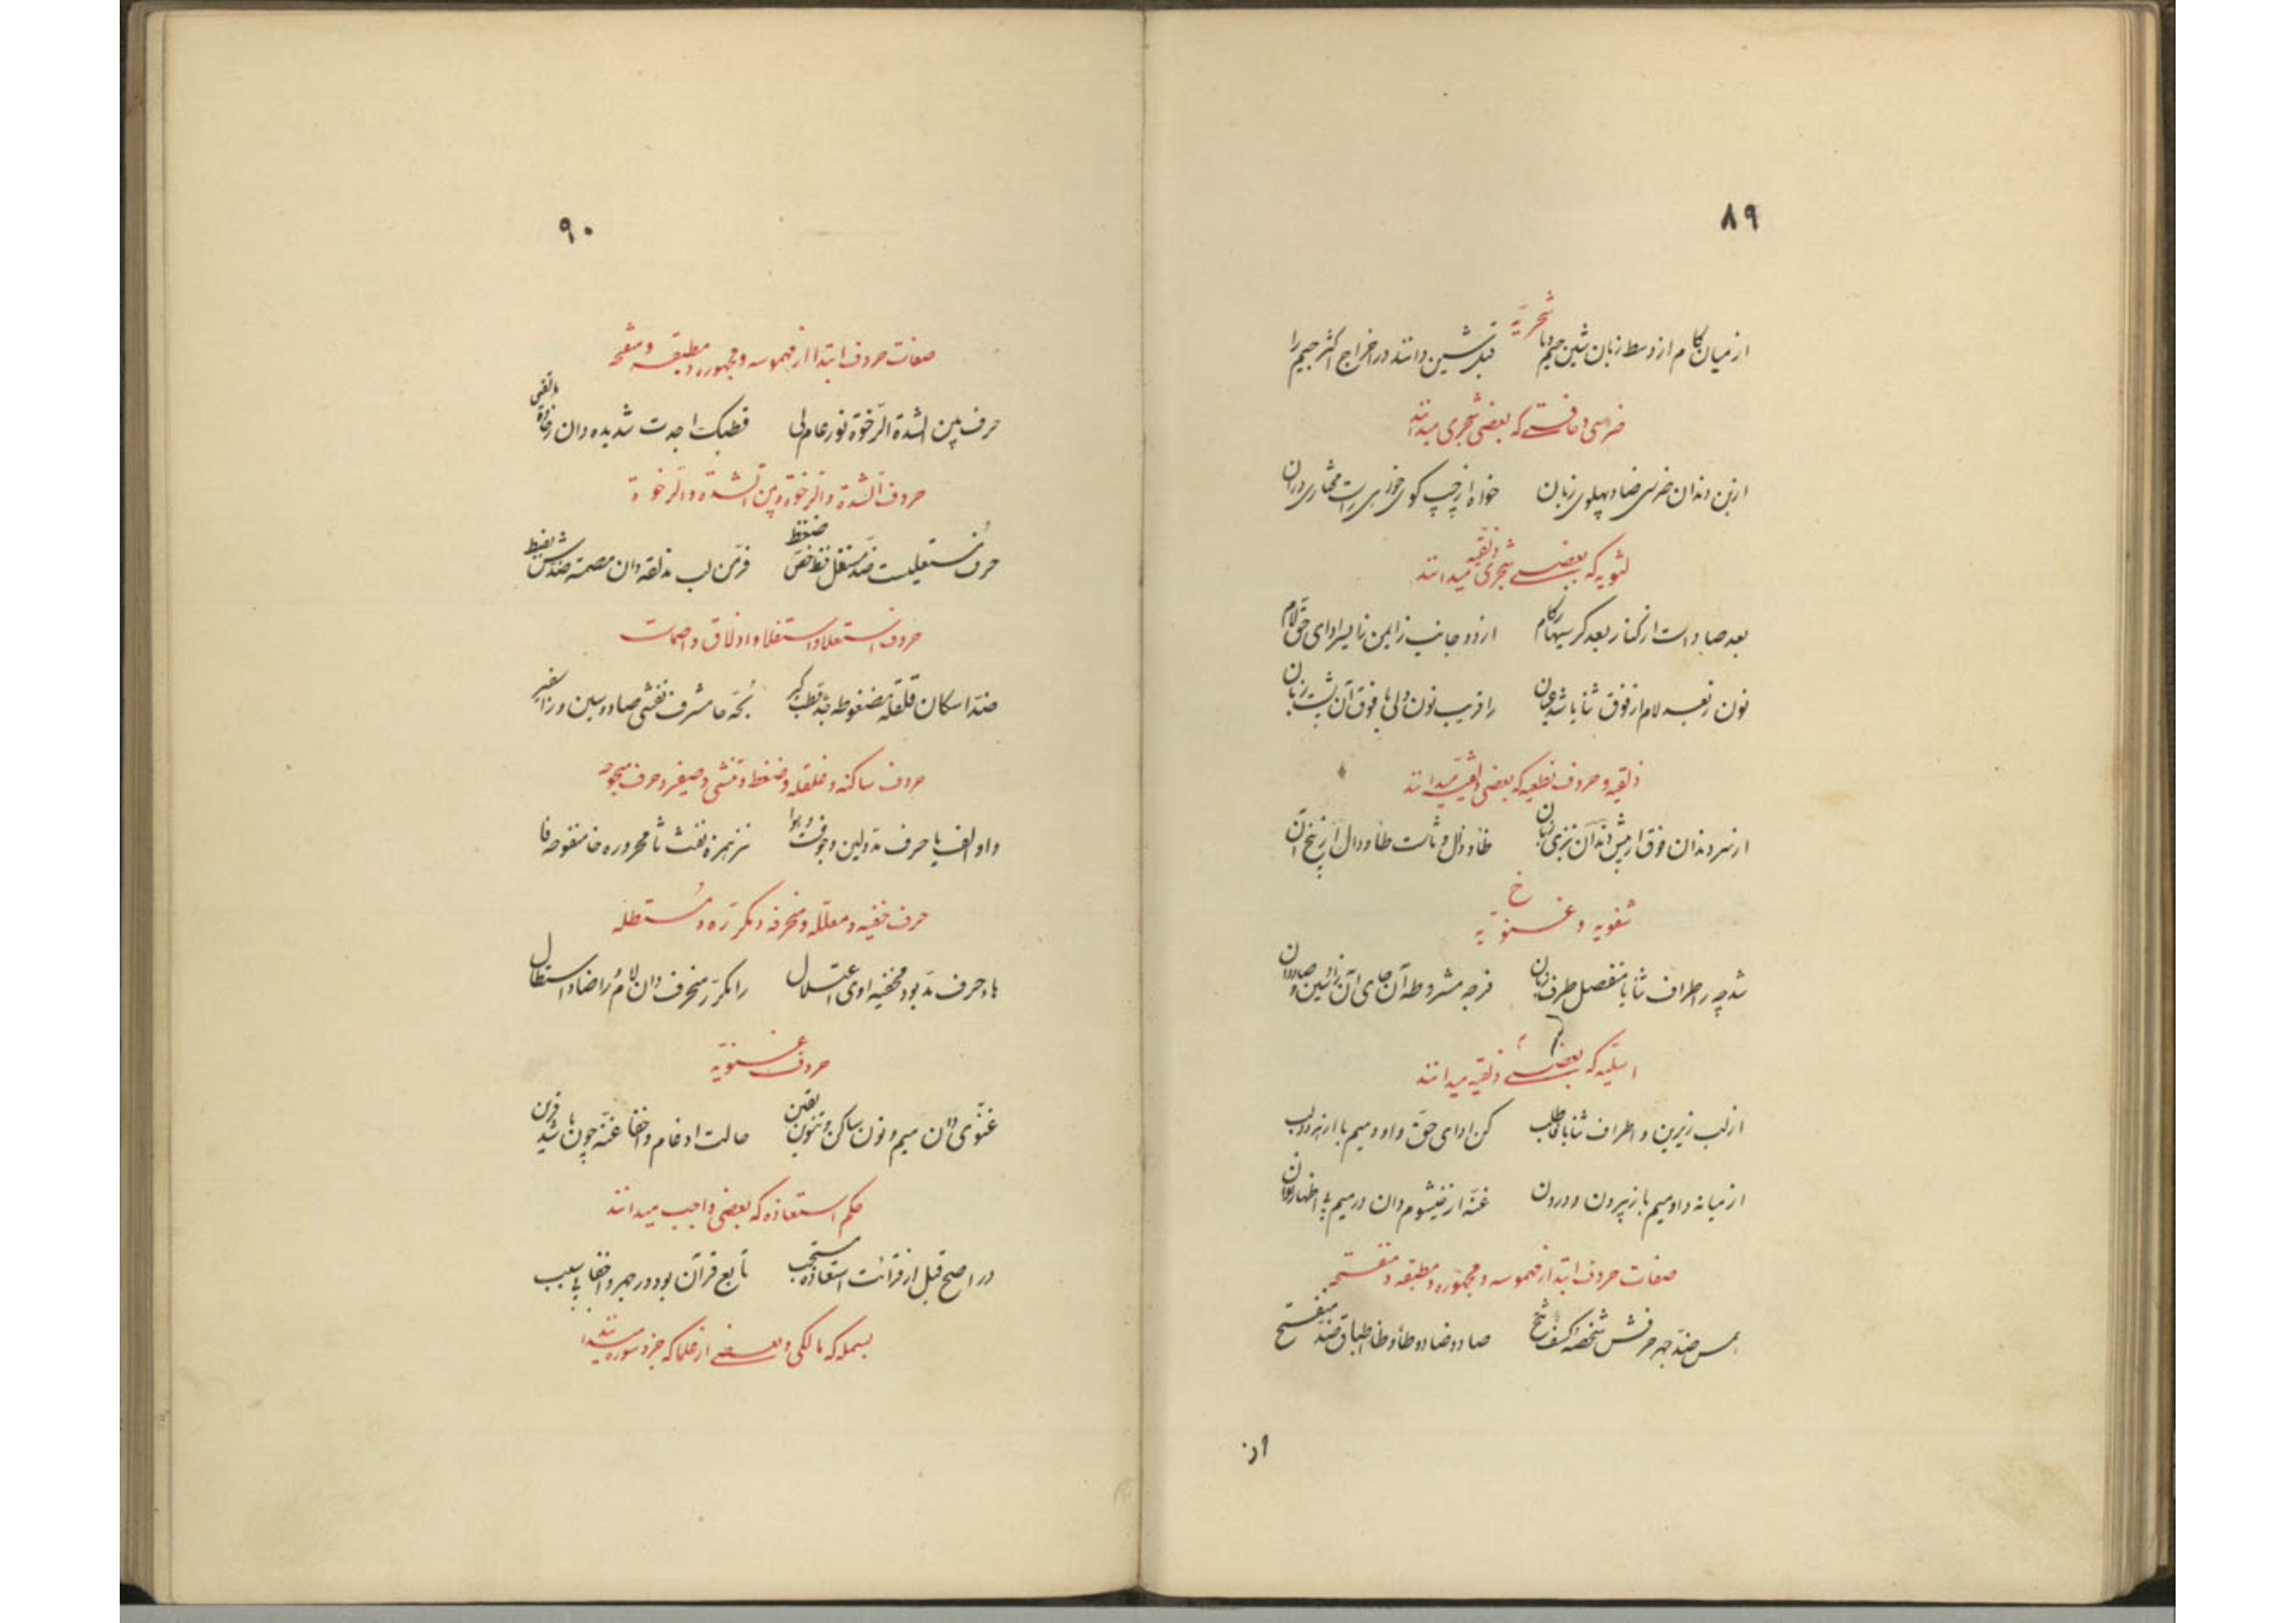 ۸۹
شجریّه
از میان کام از وسط زبان شین جیم و یا قبل شین دانند در اخراج اکثر جیم را
ضرسی و حافی که بعضی شجری میدانند
از بن دندان ضرسی ضاد پهلوی زبان خواه از چپ کوی خواه راست مختاری در آن
لثویه که بعضی شجری و ذلقیه میدانند
بعد ضاد است از کنار بعد کرسیها کام از دو جانب زایمن زایسر ادای حق لام
نون ز لام از فوق ثنایا شد عیان را قریب نون ولی با فوق آن پشت زبان
ذلقیه و حروف نطعیه که بعضی میدانند
از سر دندان فوق از پیش دندان تیزی زبان ظا و ذال و ثا ست طا و دال تا از بیخ آن
خ
شفویه و غنویّه
شد چه در اطراف ثنایا منفصل طرف زبان فرجه مشروطه آن جای آن زا سین و صاد دان
اسلیّه که بعضی ذلقیه میدانند
از لب زیرین و اطراف ثنایا فا طلب کن ادای حق واو و میم با از هر دو لب
از میانه واو میم با ز بیرون و درون غنّه از خیشوم دان در میم
صفات حروف ابتدا از مهموسه و مجهوره و مطبقه و منفتحه
همس ضدّ جهر حرفش شخصه صاد و ضاد و طا و ظا اطباق ضدّ منفتح
از
۹۰
صفات حروف ابتدا از مهموسه و مجهوره و مطبقه و منفتحه
حرف بین الشدة الرّخوة نور عام لی قطبک اجدت شدیده دان رخاوة
حروف الشدّة والرّخوة و بین الشدّة والرّخوة
حرف مستعلیست ضدّ مستفل قظ خصّ ضغط فرّ من لب مذلقه دان مصمته ضدّش
حروف استعلا و استفلا و اذلاق و اصمات
ضدّ اسکان قلقله مضغوطه بحّه حا مشرف تفشی صاد و سین و زا صفیر
حروف ساکنه و قلقله و ضغط و تفشی و صفیر و حرف مبحوحه
واو الف یا حرف مدّ و لین و جوفست و هوا نبر همزه نفث ثا محروره خا منفوخه فا
حرف خفیه و معتلّه و منحرفه و مکرّره و مستطله
ها و حرف مدّ بود مخفیه اوی اعتلال را مکرّر منحرف دان لام و را ضاد استطال
حروف غنویّه
غنّوی دان میم و نون ساکن و تنوین یقین حالت ادغام و اخفا غنّه چون با شد قرین
حکم استعاذه که بعضی واجب میدانند
در اصح قبل از قرائت استعاذه مستحب تابع قرآن بود در جهر و اخفا بی سبب
بسمله که مالکی و بعضی از علما که جزو سوره میدانند